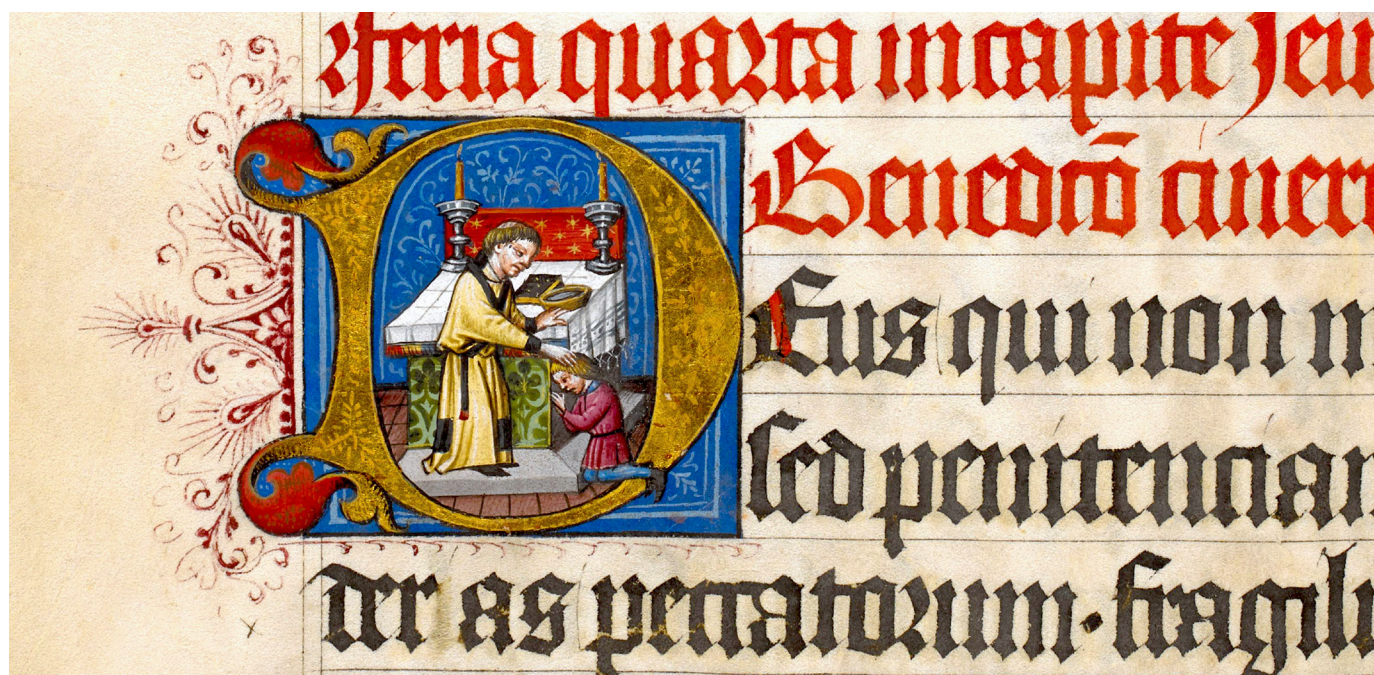 Feria quarta in capite Jeiu
Benedcō ciner
DEus qui non m
sed penitenciam
der as peccatorum · fragili